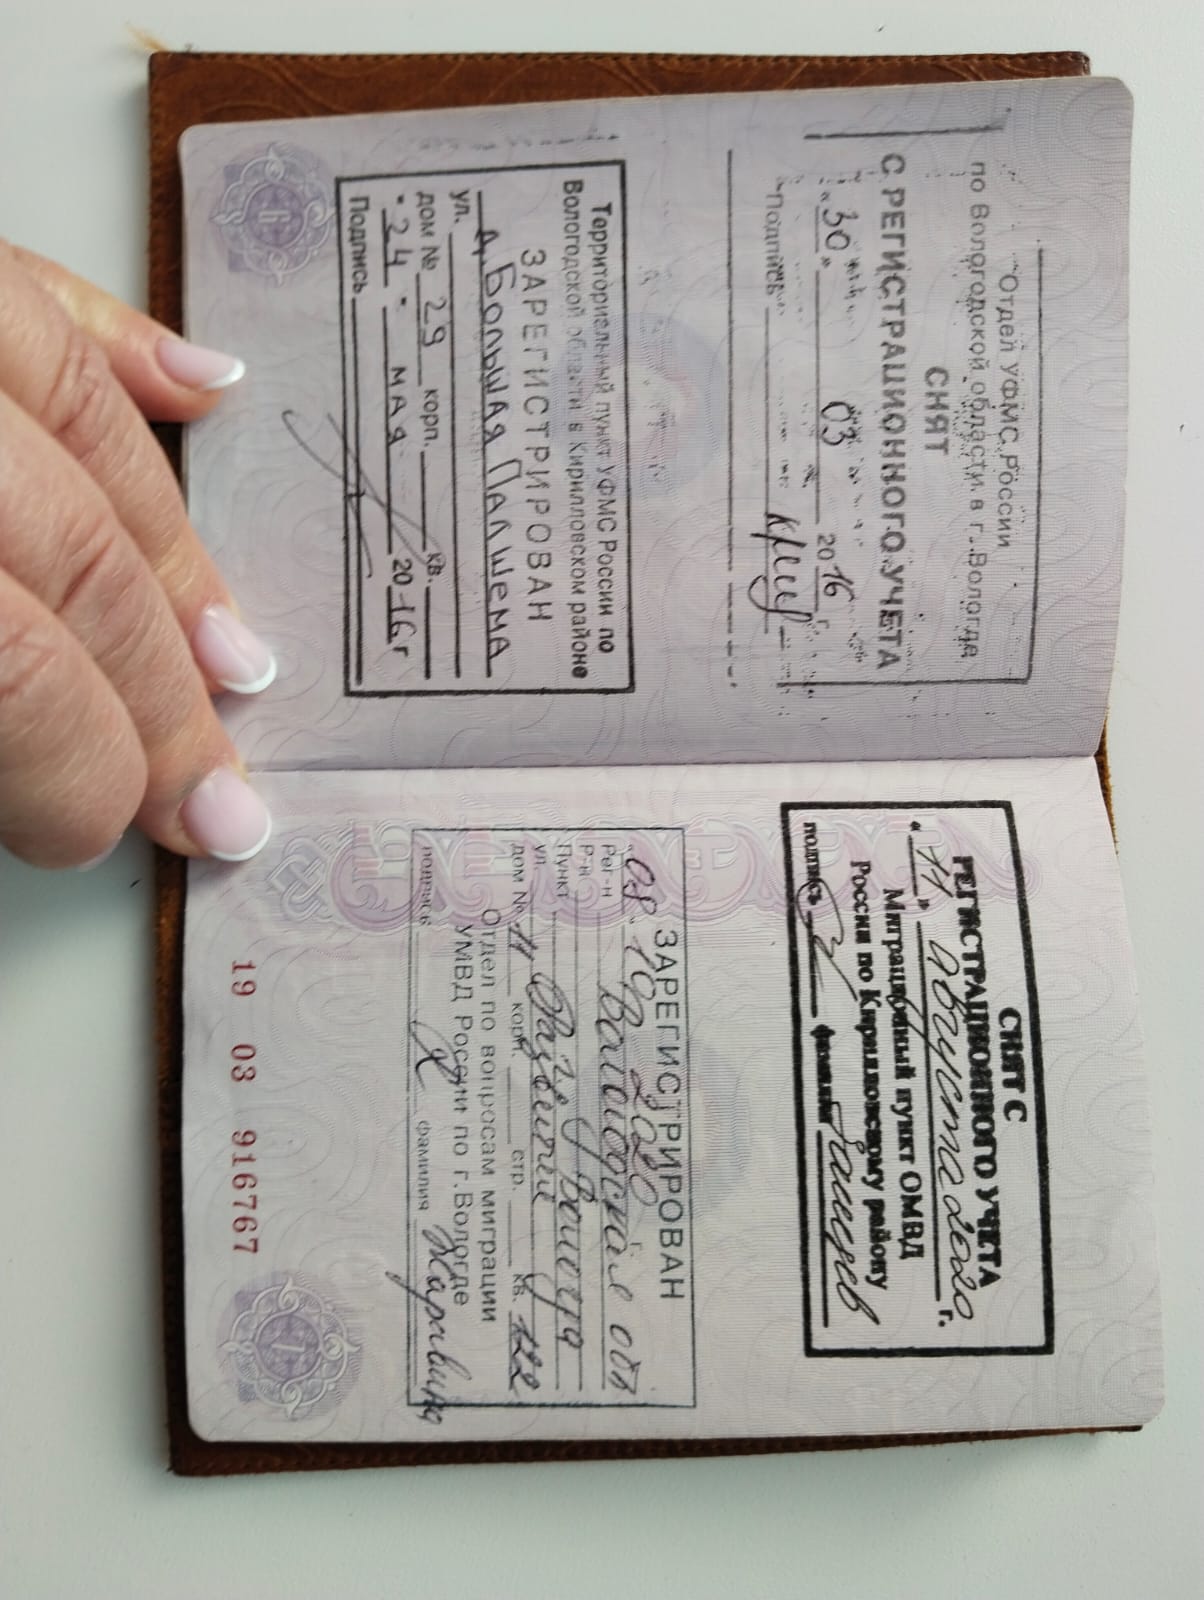 Отдел УФМС России
по Вологодской области в г. Вологде
СНЯТ
С РЕГИСТРАЦИОННОГО УЧЕТА
"30" 03 2016 г.
Подпись
Территориальный пункт УФМС России по
Вологодской области в Кирилловском районе
ЗАРЕГИСТРИРОВАН
д. Большая Палшема
ул.
дом № 29 корп. кв.
"24" мая 2016 г
Подпись
6
СНЯТ С
РЕГИСТРАЦИОННОГО УЧЕТА
"11" августа 2020 г.
Миграционный пункт ОМВД
России по Кирилловскому району
подпись фамилия
ЗАРЕГИСТРИРОВАН
"08" 10 2020 г.
Рег-н Вологодская обл
Р-н
Пункт г. Вологда
ул.
дом № 11 корп. стр. кв. 122
Отдел по вопросам миграции
УМВД России по г.Вологде
подпись фамилия
19 03 916767
7